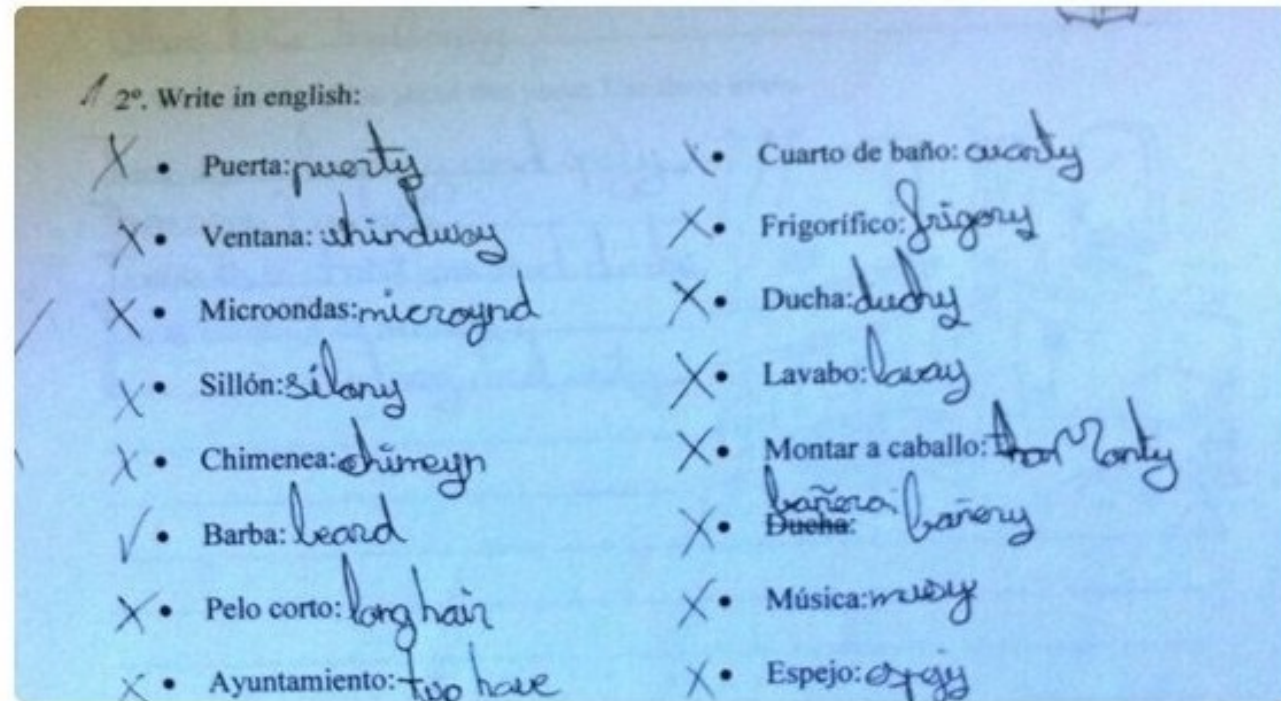 2º. Write in english:
• Puerta: puerty
• Ventana: whindwoy
• Microondas: microynd
• Sillón: silony
• Chimenea: chimeyn
• Barba: beard
• Pelo corto: long hair
• Ayuntamiento: two have
• Cuarto de baño: cuarty
• Frigorífico: frigory
• Ducha: duchy
• Lavabo: lavay
• Montar a caballo:
• Ducha: bañera: bañery
• Música: musy
• Espejo: espejy